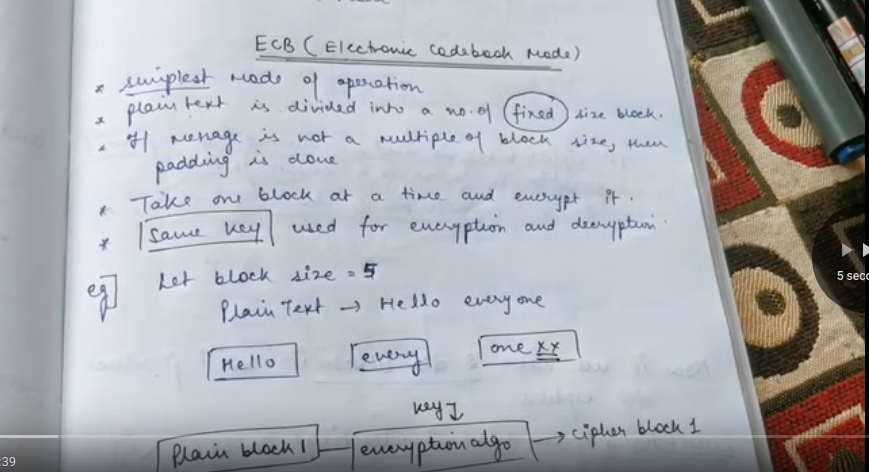 ECB (Electronic Codebook Mode)
* simplest mode of operation
* plain text is divided into a no. of fixed size block.
* If message is not a multiple of block size, then
padding is done
* Take one block at a time and encrypt it.
* same key used for encryption and decryption.
eg] Let block size = 5
Plain Text → Hello everyone
Hello every one xx
key
Plain block 1 encryption algo → cipher block 1
:39
5 seco